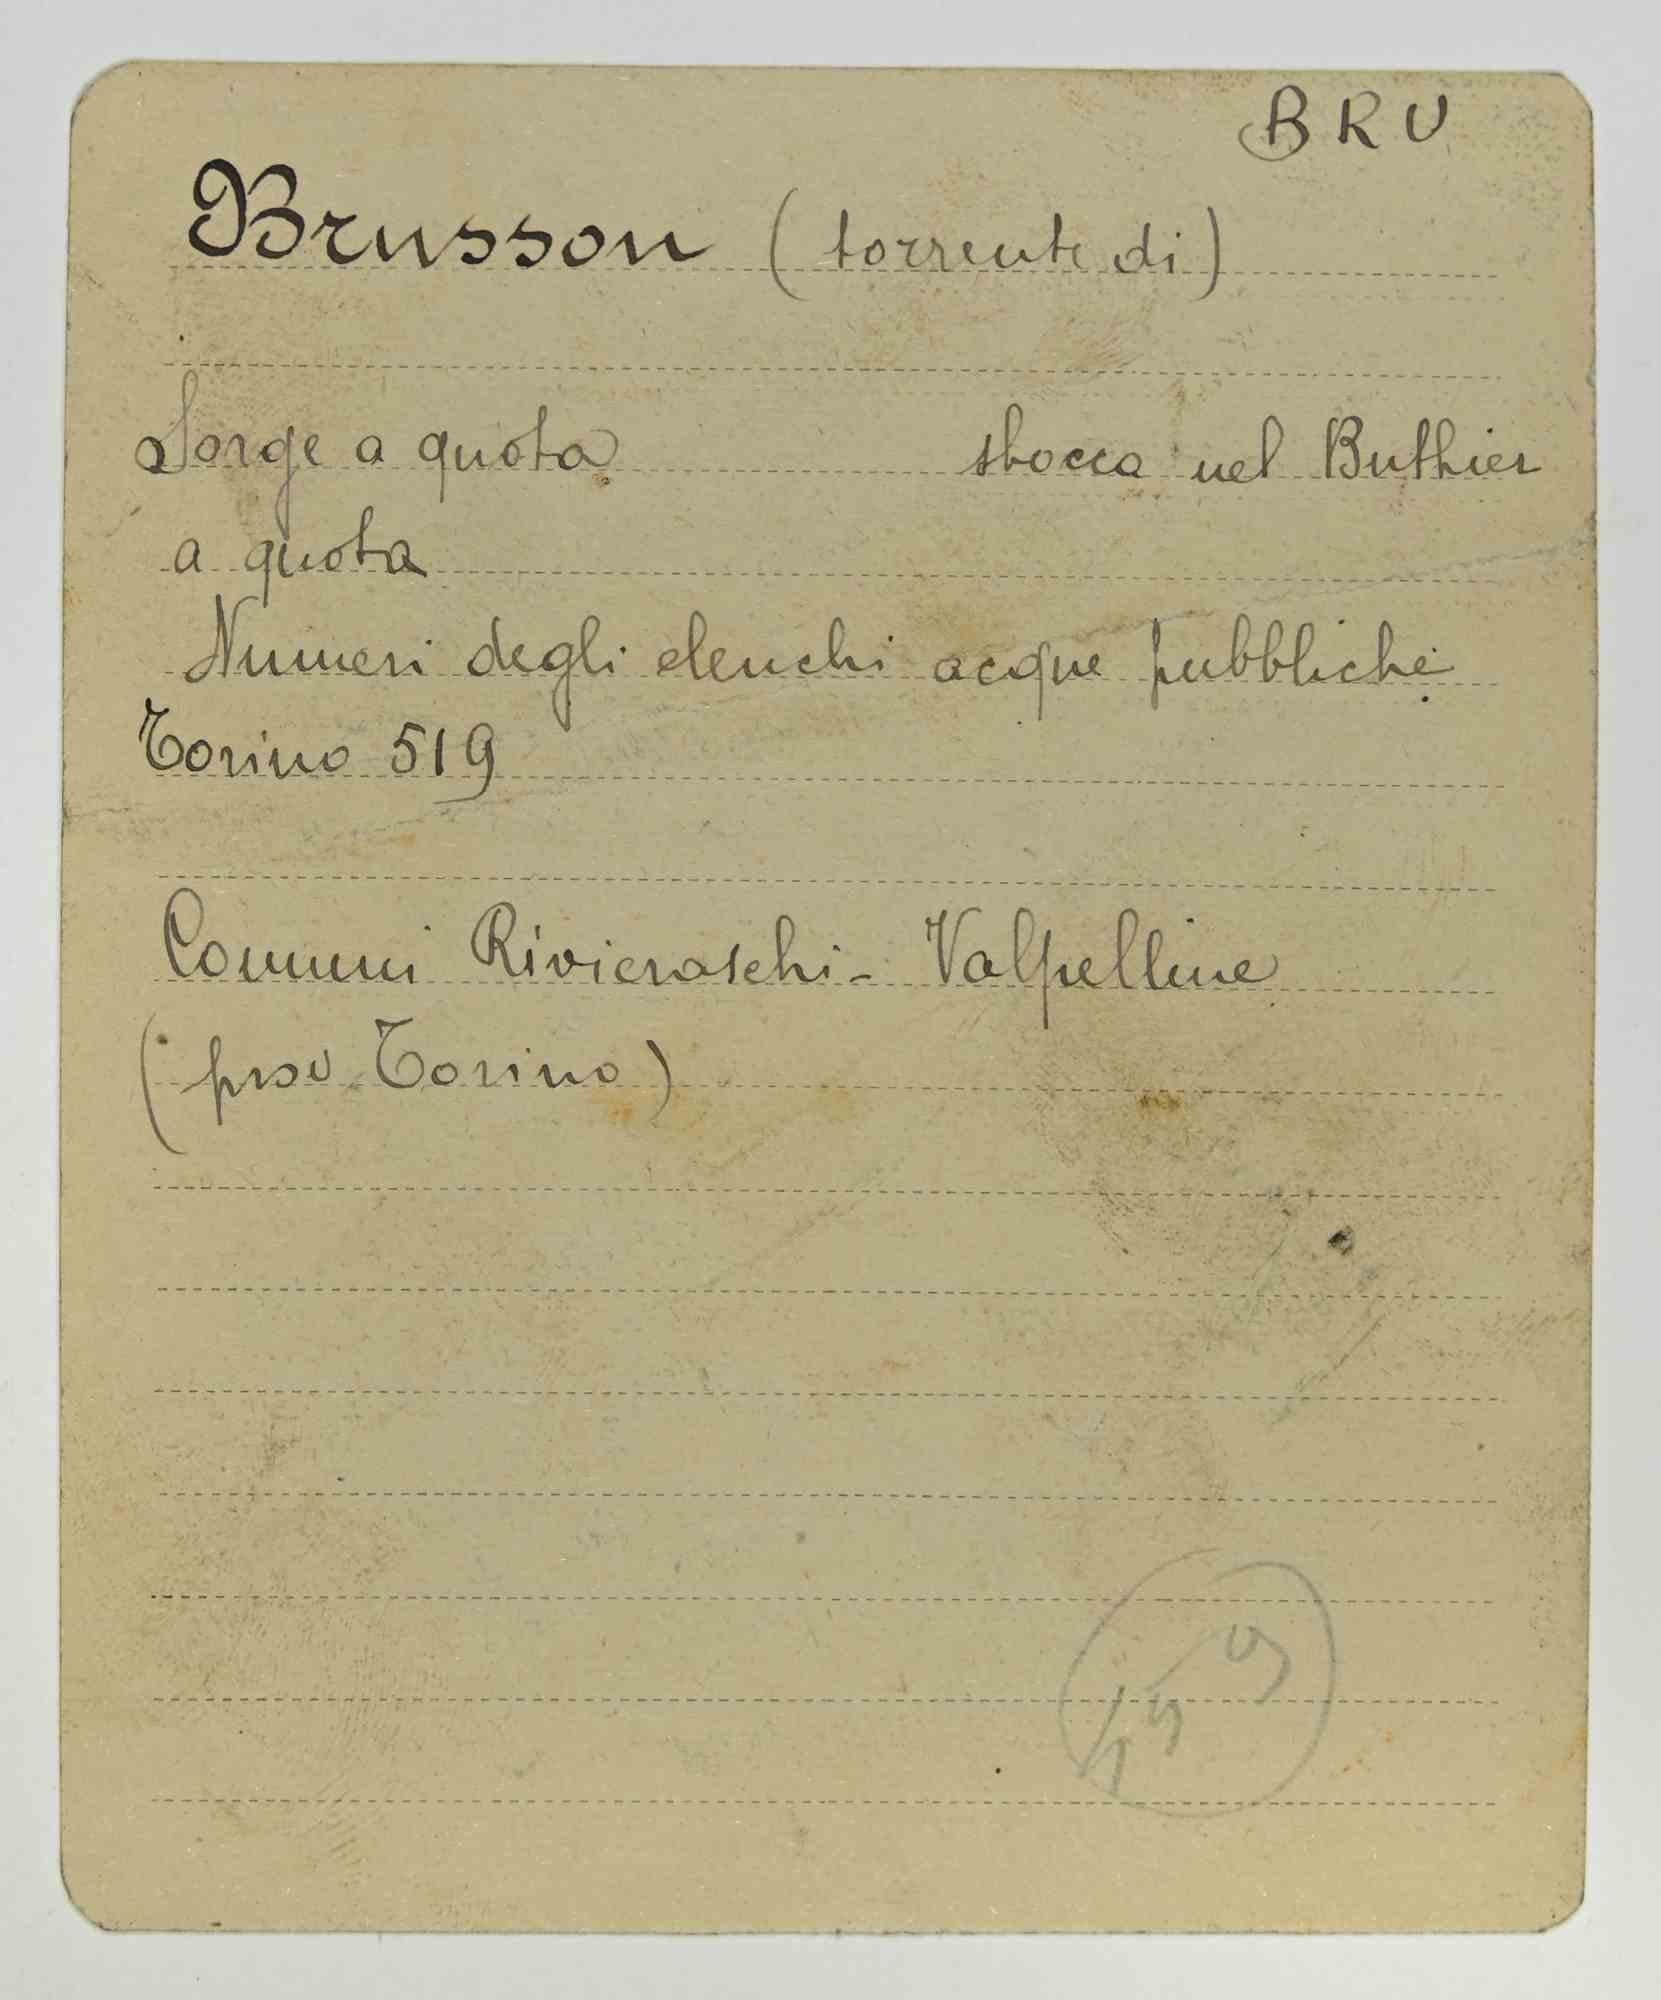 BRU
Brusson (torrente di)
Sorge a quota sbocca nel Buthier
a quota
Numeri degli elenchi acque pubbliche
Torino 519
Comuni Rivieraschi - Valpelline
(prov Torino)